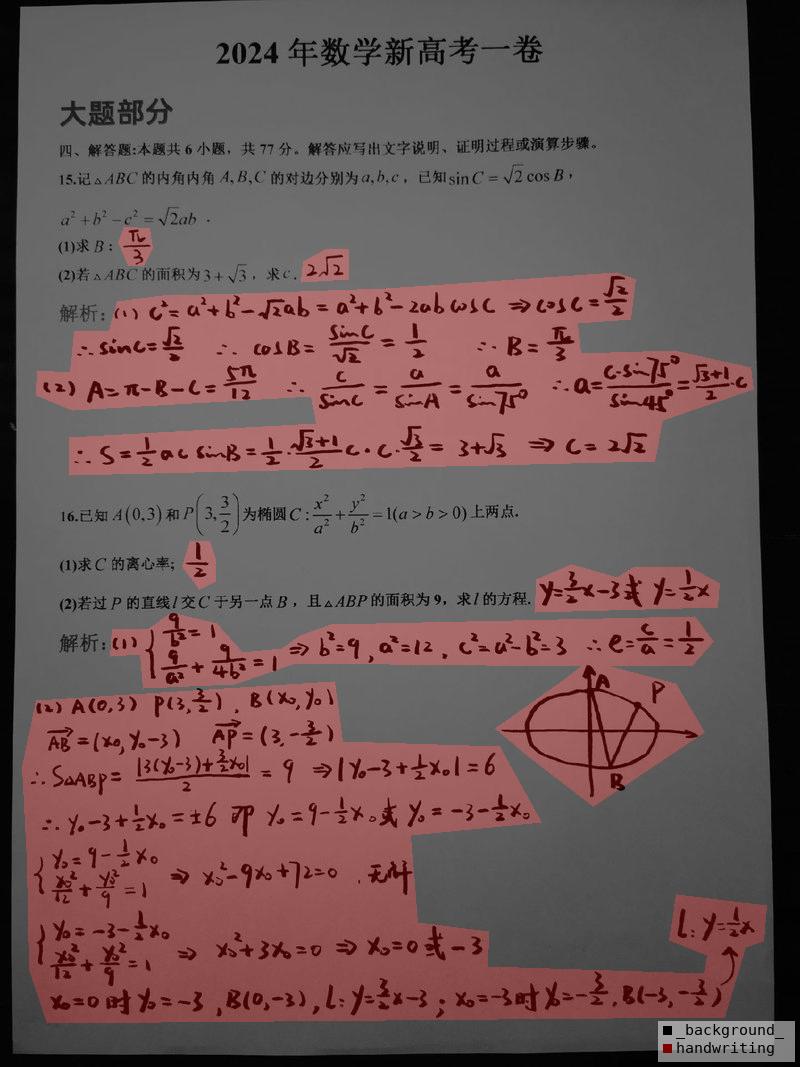 2024 年数学新高考一卷
大题部分
四、解答题:本题共 6 小题，共 77 分。解答应写出文字说明、证明过程或演算步骤。
15.记△ABC 的内角内角 A,B,C 的对边分别为 a,b,c，已知 sinC = √2 cosB，
a² + b² − c² = √2ab .
(1)求 B： π/3
(2)若△ABC 的面积为 3 + √3，求 c. 2√2
解析: (1) c² = a² + b² − √2ab = a² + b² − 2ab cosC ⇒ cosC = √2/2
∴ sinC = √2/2 ∴ cosB = sinC/√2 = 1/2 ∴ B = π/3
(2) A = π − B − C = 5π/12 ∴ c/sinC = a/sinA = a/sin75° ∴ a = c·sin75°/sin45° = (√3+1)/2·c
∴ S = 1/2 ac sinB = 1/2·(√3+1)/2 c·c·√3/2 = 3+√3 ⇒ c = 2√2
16.已知 A(0,3) 和 P(3, 3/2) 为椭圆 C : x²/a² + y²/b² = 1(a > b > 0) 上两点.
(1)求 C 的离心率; 1/2
(2)若过 P 的直线 l 交 C 于另一点 B，且△ABP 的面积为 9，求 l 的方程. y=3/2x−3 或 y=1/2x
解析: (1) { 9/b² = 1
9/a² + 9/4b² = 1 ⇒ b²=9, a²=12, c²=a²−b²=3 ∴ e = c/a = 1/2
A P B
(2) A(0,3) P(3,3/2), B(x₀,y₀)
AB = (x₀, y₀−3) AP = (3, −3/2)
∴ S△ABP = |3(y₀−3)+3/2x₀|/2 = 9 ⇒ |y₀−3+1/2x₀| = 6
∴ y₀−3+1/2x₀ = ±6 即 y₀ = 9−1/2x₀ 或 y₀ = −3−1/2x₀
{ y₀ = 9−1/2x₀
x₀²/12 + y₀²/9 = 1 ⇒ x₀²−9x₀+72=0 , 无解
{ y₀ = −3−1/2x₀
x₀²/12 + y₀²/9 = 1 ⇒ x₀²+3x₀=0 ⇒ x₀=0 或 −3
L: y=1/2x
x₀=0 时 y₀=−3, B(0,−3), L: y=3/2x−3 ; x₀=−3 时 y₀=−3/2, B(−3,−3/2)
_background_
handwriting